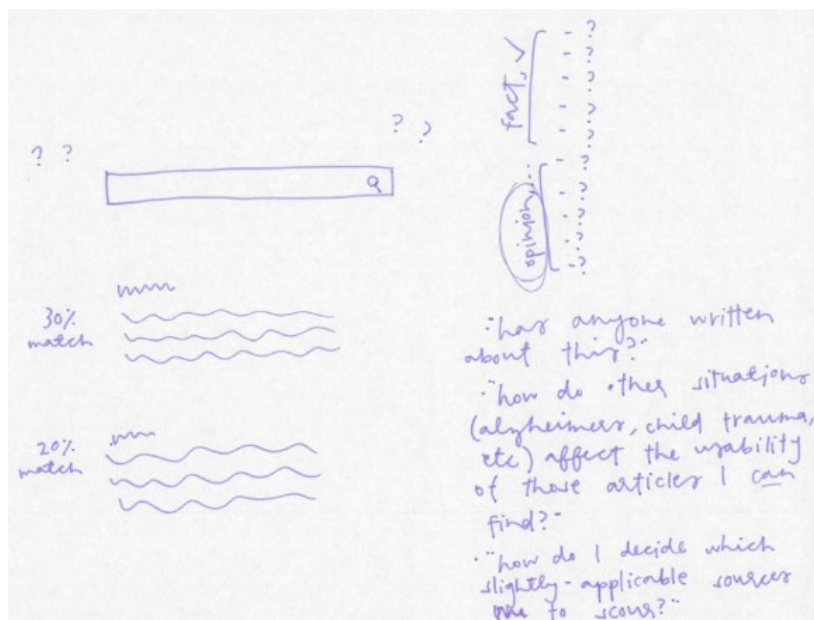 ? ?
? ?
30%
match
20%
match
fact, ✓
- ?
- ?
- ?
- ?
- ?
opinion, ...
- ?
- ?
- ?
- ?
- ?
·"has anyone written
about this?"
·"how do other situations
(alzheimers, child trauma,
etc) affect the usability
of those articles I can
find?"
·"how do I decide which
slightly-applicable sources
are to scour?"